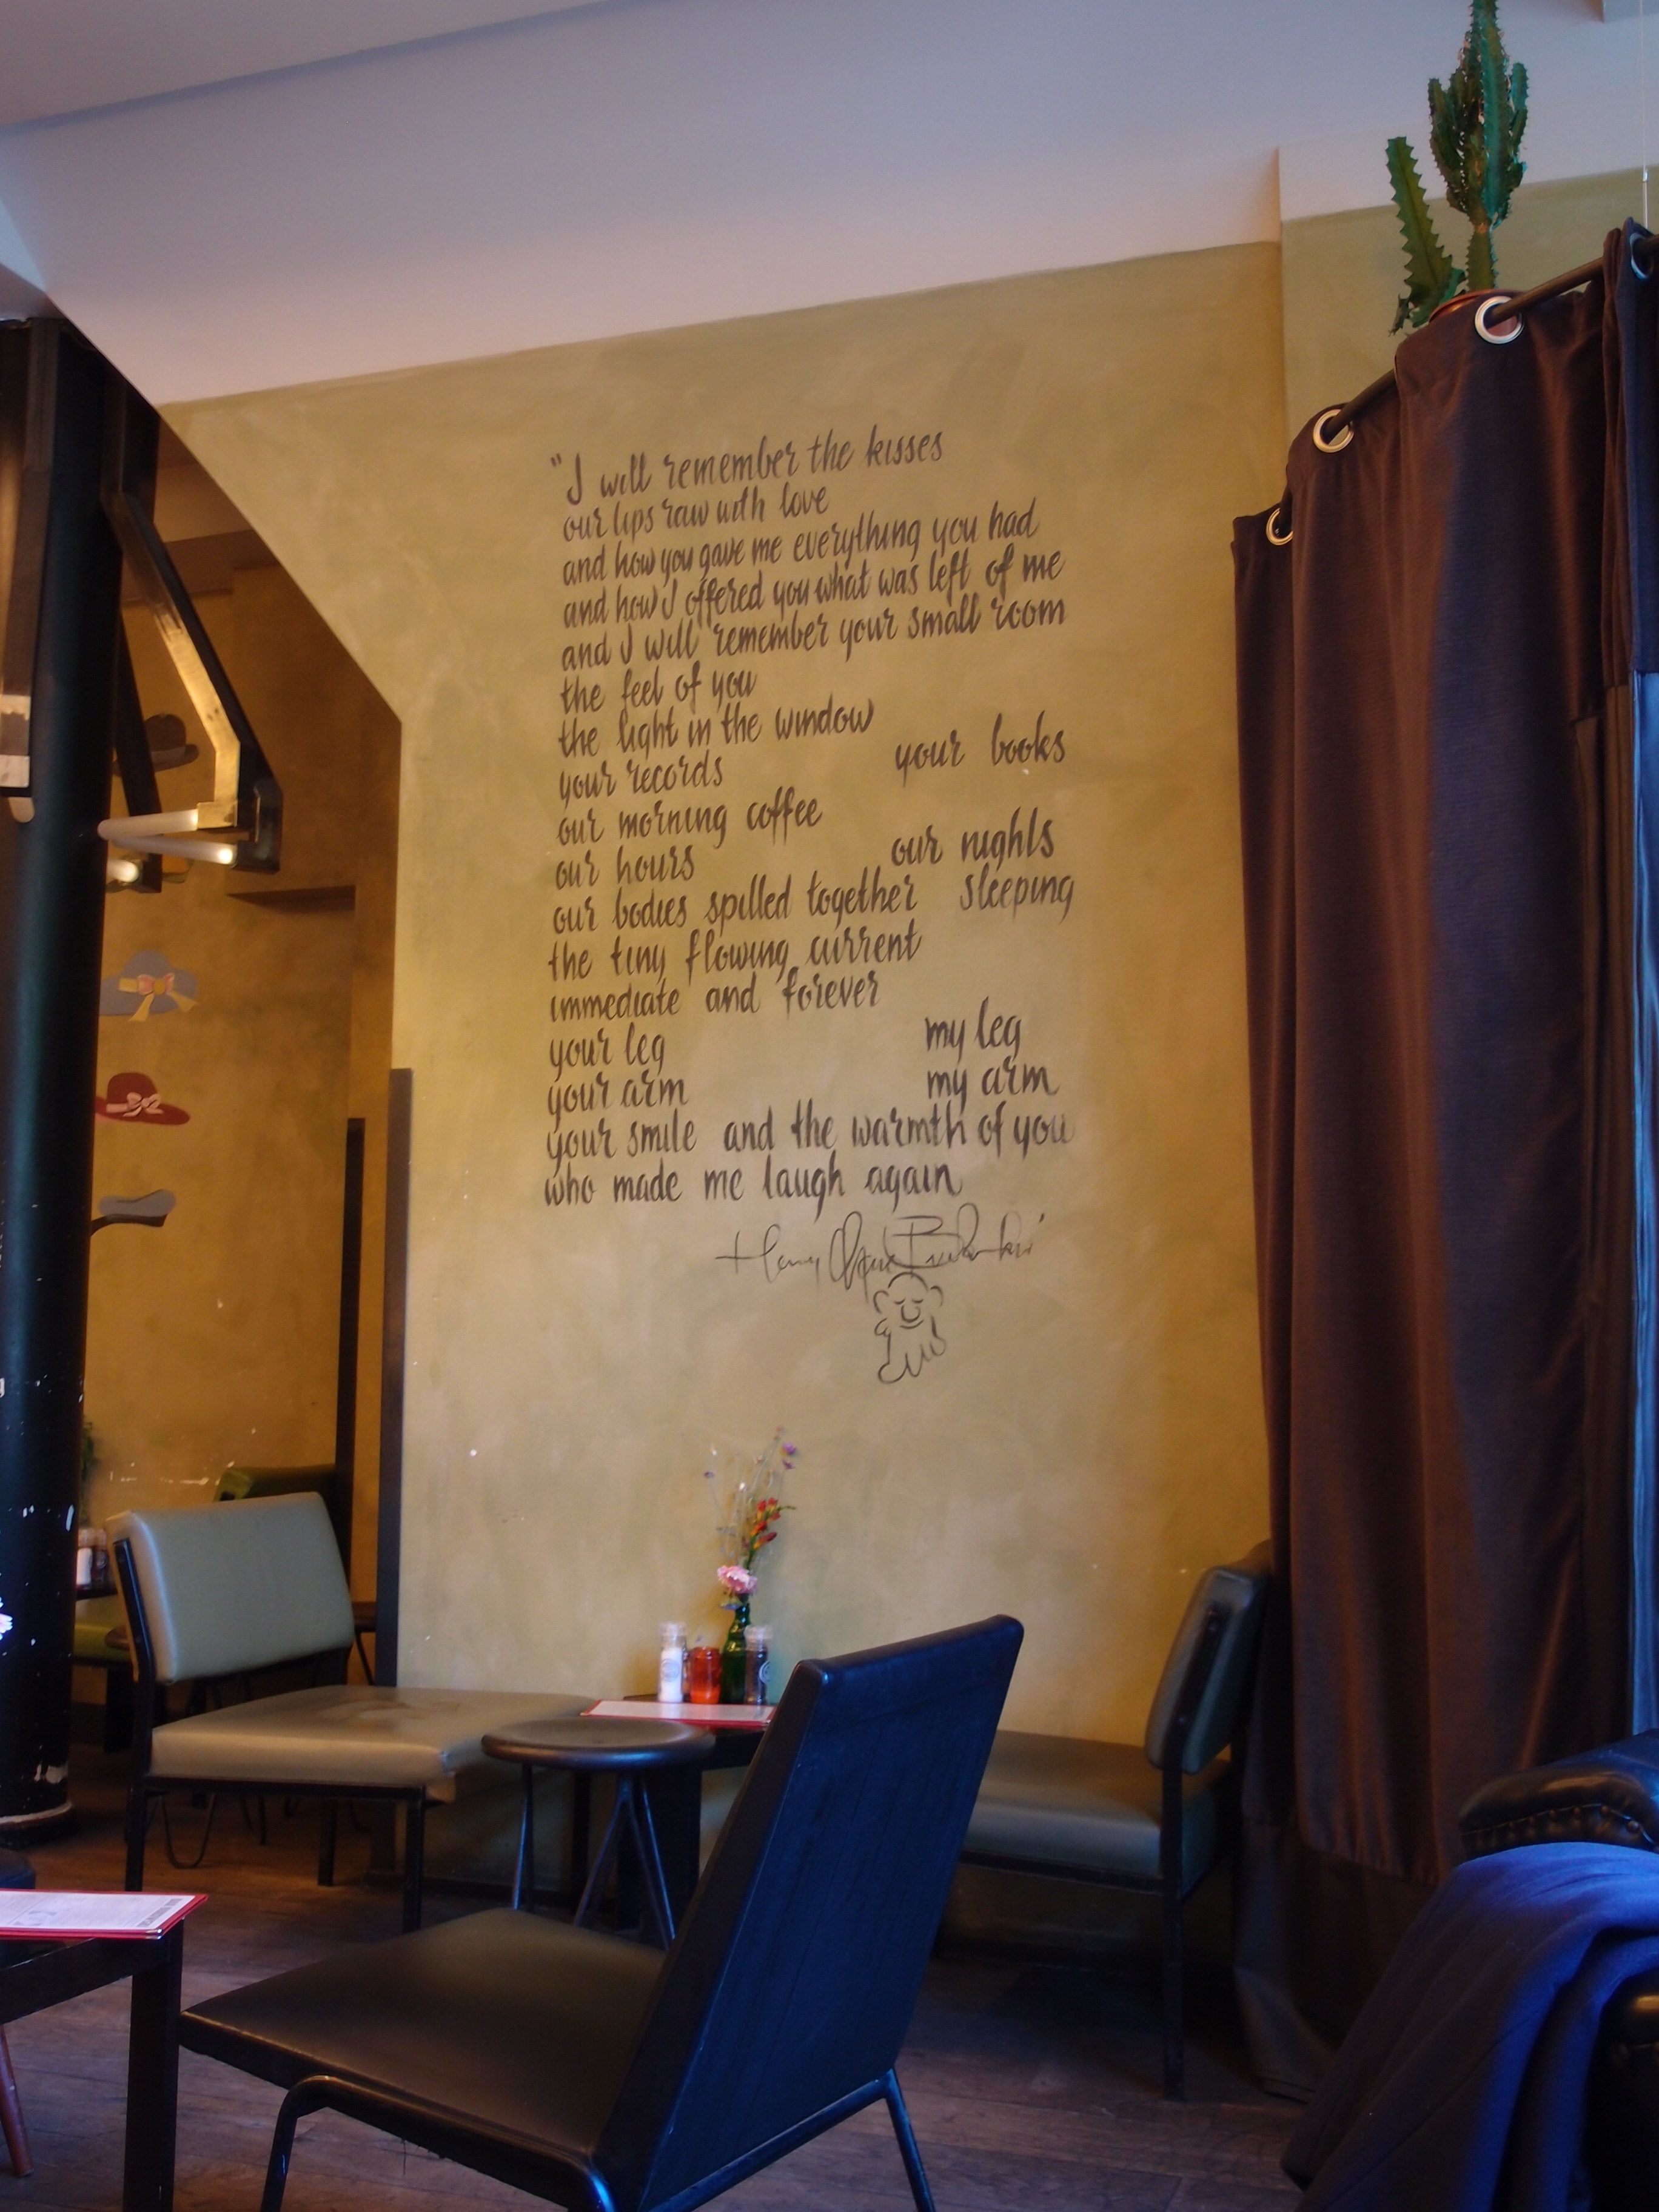 "I will remember the kisses
our lips raw with love
and how you gave me everything you had
and how I offered you what was left of me
and I will remember your small room
the feel of you
the light in the window
your records your books
our morning coffee
our hours our nights
our bodies spilled together sleeping
the tiny flowing current
immediate and forever
your leg my leg
your arm my arm
your smile and the warmth of you
who made me laugh again